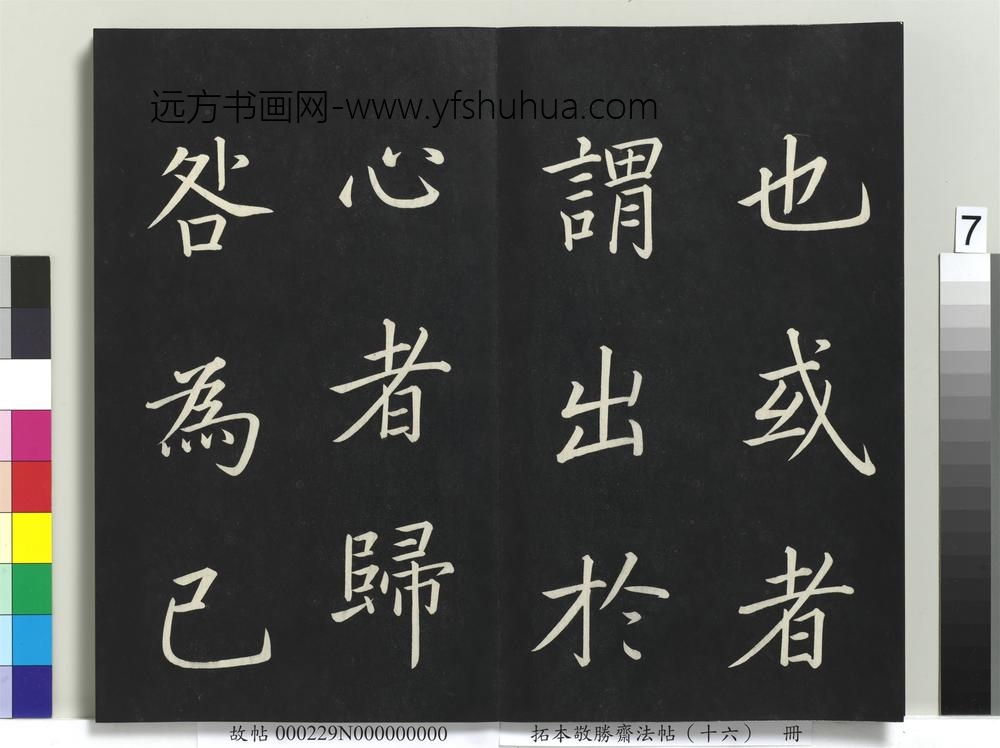 远方书画网-www.yfshuhua.com
也或者
謂出於
心者歸
咎為己
7
故帖 000229N000000000
拓本敬勝齋法帖（十六） 冊